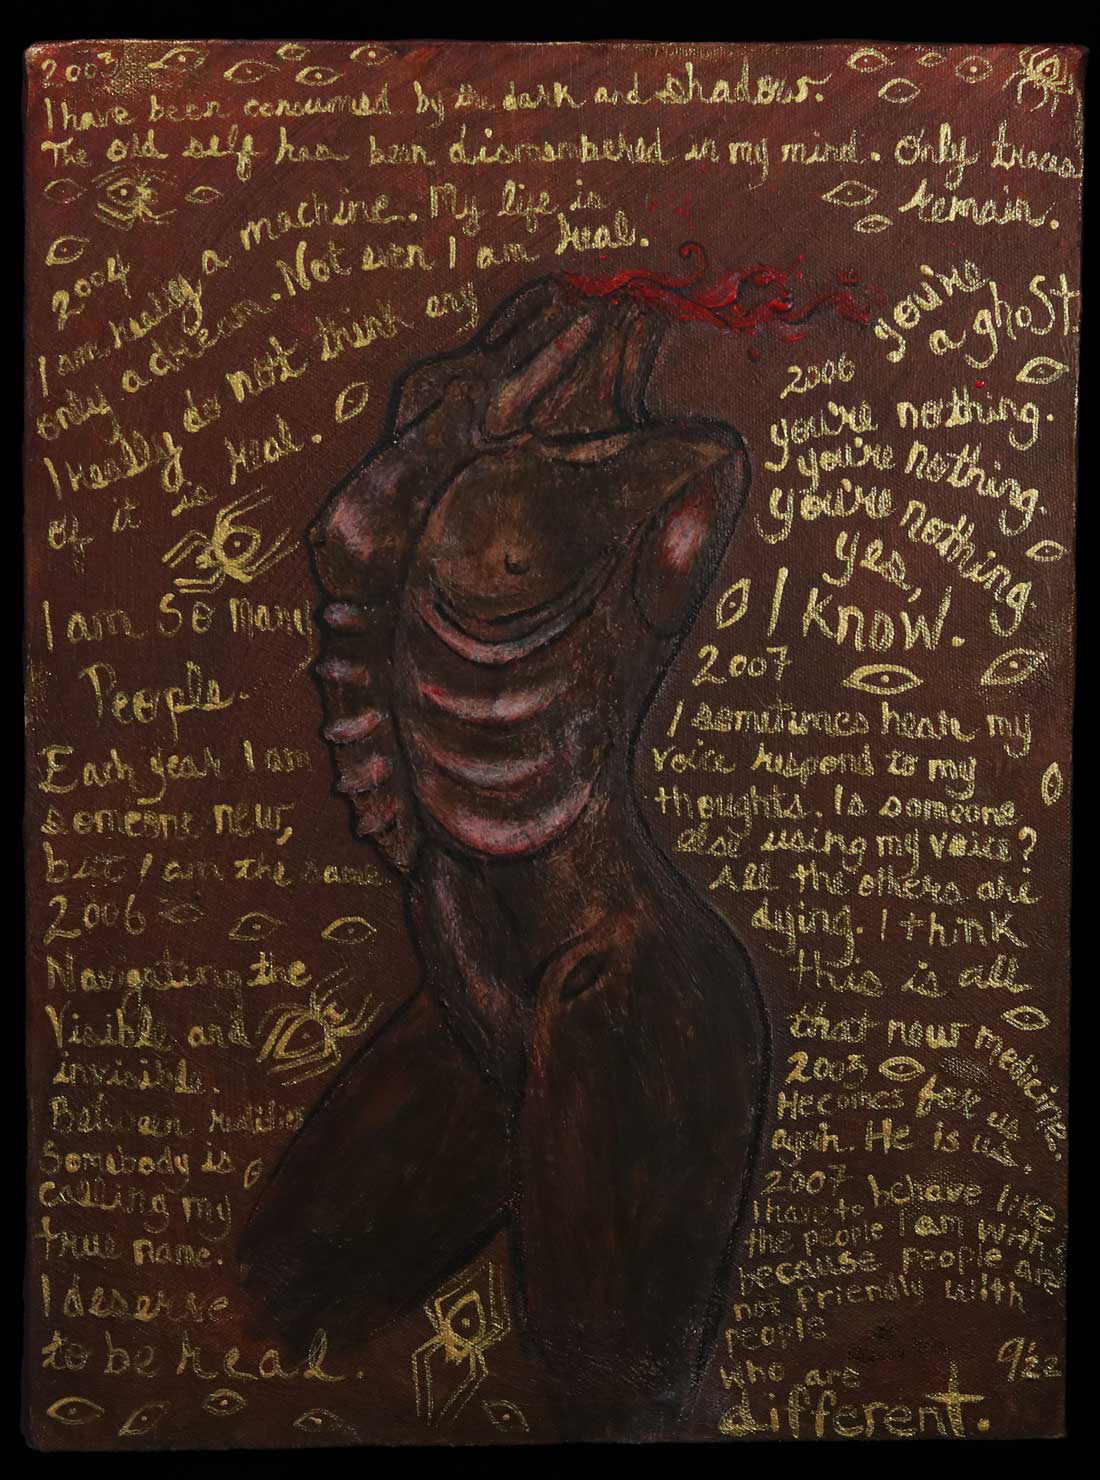 2003
I have been consumed by the dark and shadow.
The old self has been dismembered in my mind. Only traces
remain.
2004
I am really a machine. My life is
only a dream. Not even I am real.
I really do not think any
of it is real.
I am so many
People.
Each year I am
someone new,
but I am the same
2006
Navigating the
Visible and
invisible.
Between realities
Somebody is
calling my
true name.
I deserve
to be real.
you're
a ghost.
2006
you're nothing.
you're nothing.
you're nothing.
Yes,
I know.
2007
I sometimes hear my
voice respond to my
thoughts. Is someone
else using my voice?
All the others are
dying. I think
this is all
that new medicine.
2003
He comes for us
again. He is us.
2007
I have to behave like
the people I am with
because people are
not friendly with
people
who are
different.
9'22